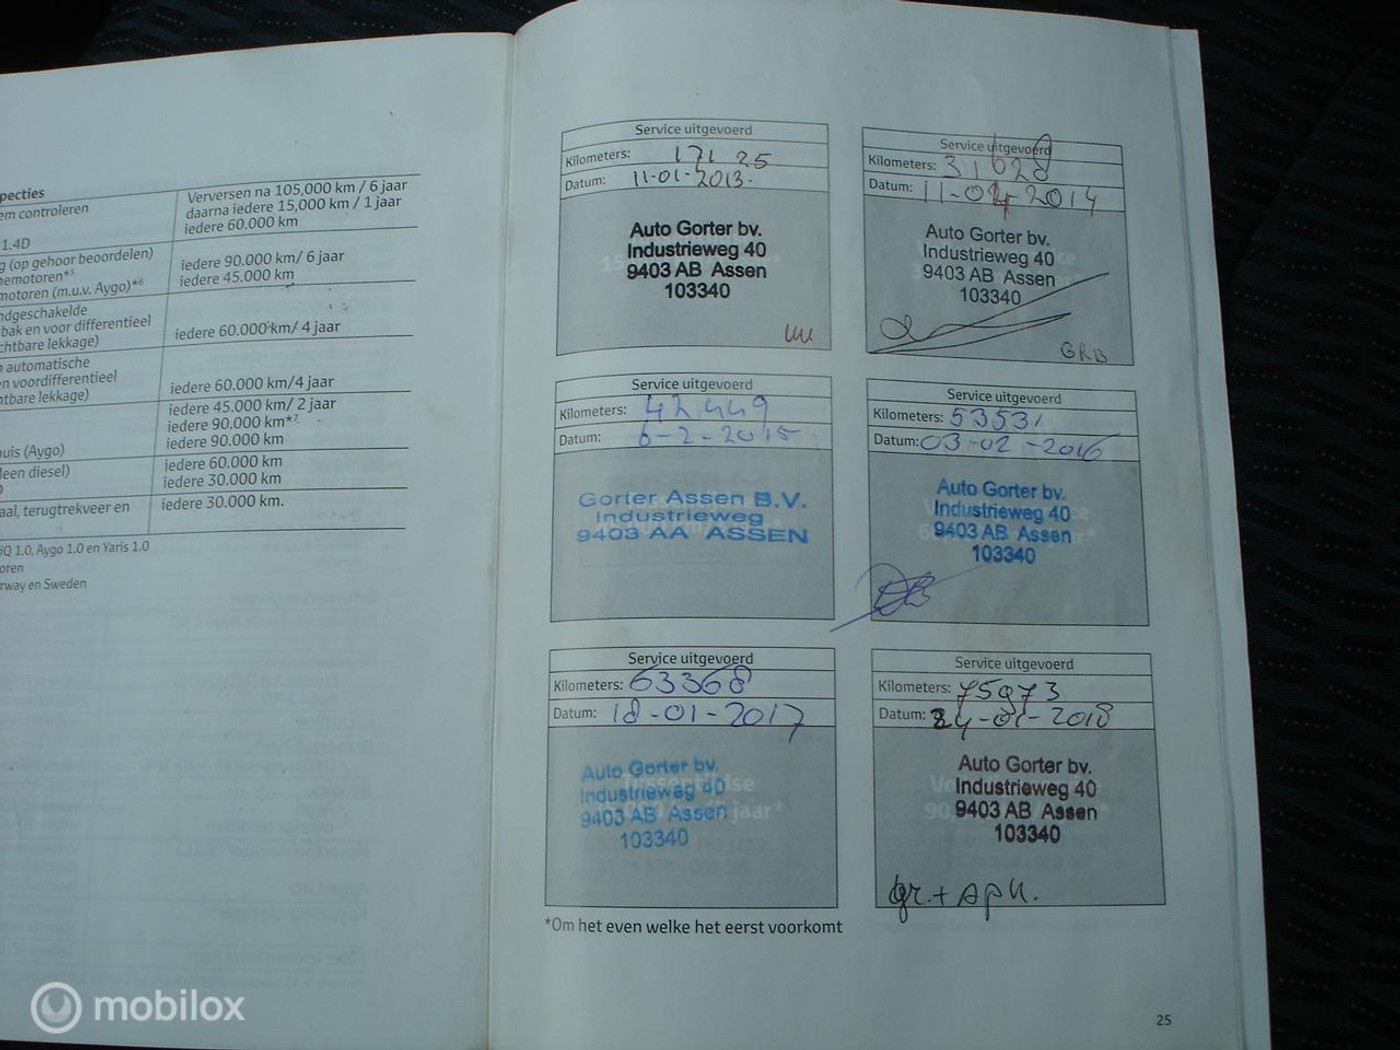 pecties
em controleren
Verversen na 105,000 km / 6 jaar
daarna iedere 15,000 km / 1 jaar
1.4D
iedere 60.000 km
g (op gehoor beoordelen)
nemotoren*5
iedere 90.000 km/ 6 jaar
motoren (m.u.v. Aygo)*6
iedere 45.000 km
ndgeschakelde
bak en voor differentieel
chtbare lekkage)
iedere 60.000 km/ 4 jaar
n automatische
en voordifferentieel
tbare lekkage)
iedere 60.000 km/4 jaar
iedere 45.000 km/ 2 jaar
iedere 90.000 km*7
huis (Aygo)
iedere 90.000 km
leen diesel)
iedere 60.000 km
iedere 30.000 km
aal, terugtrekveer en
iedere 30.000 km.
iQ 1.0, Aygo 1.0 en Yaris 1.0
oren
rway en Sweden
Service uitgevoerd
Kilometers: 17125
Datum: 11-01-2013.
Auto Gorter bv.
Industrieweg 40
9403 AB Assen
103340
Service uitgevoerd
Kilometers: 31628
Datum: 11-02-2014
Auto Gorter bv.
Industrieweg 40
9403 AB Assen
103340
GRB
Service uitgevoerd
Kilometers: 42449
Datum: 6-2-2015
Gorter Assen B.V.
Industrieweg
9403 AA ASSEN
Service uitgevoerd
Kilometers: 53531
Datum: 03-02-2016
Auto Gorter bv.
Industrieweg 40
9403 AB Assen
103340
Service uitgevoerd
Kilometers: 63368
Datum: 18-01-2017
Auto Gorter bv.
Industrieweg 40
9403 AB Assen
103340
Service uitgevoerd
Kilometers: 75973
Datum: 24-01-2018
Auto Gorter bv.
Industrieweg 40
9403 AB Assen
103340
gr. + apk.
*Om het even welke het eerst voorkomt
25
mobilox